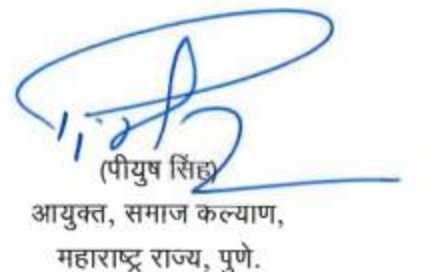 (पीयुष सिंह)
आयुक्त, समाज कल्याण,
महाराष्ट्र राज्य, पुणे.